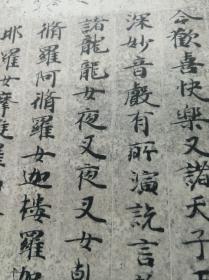 令歡喜快樂又諸天子
深妙音聲有所演說言
諸龍龍女夜叉夜叉女乹
脩羅阿脩羅女迦樓羅迦
耶羅女摩